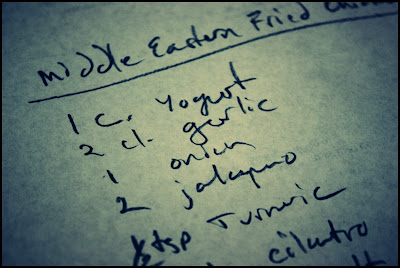 middle Eastern Fried
1 c. Yogurt
2 cl. garlic
1 onion
2 jalapeno
½ tsp Turmeric
cilantro